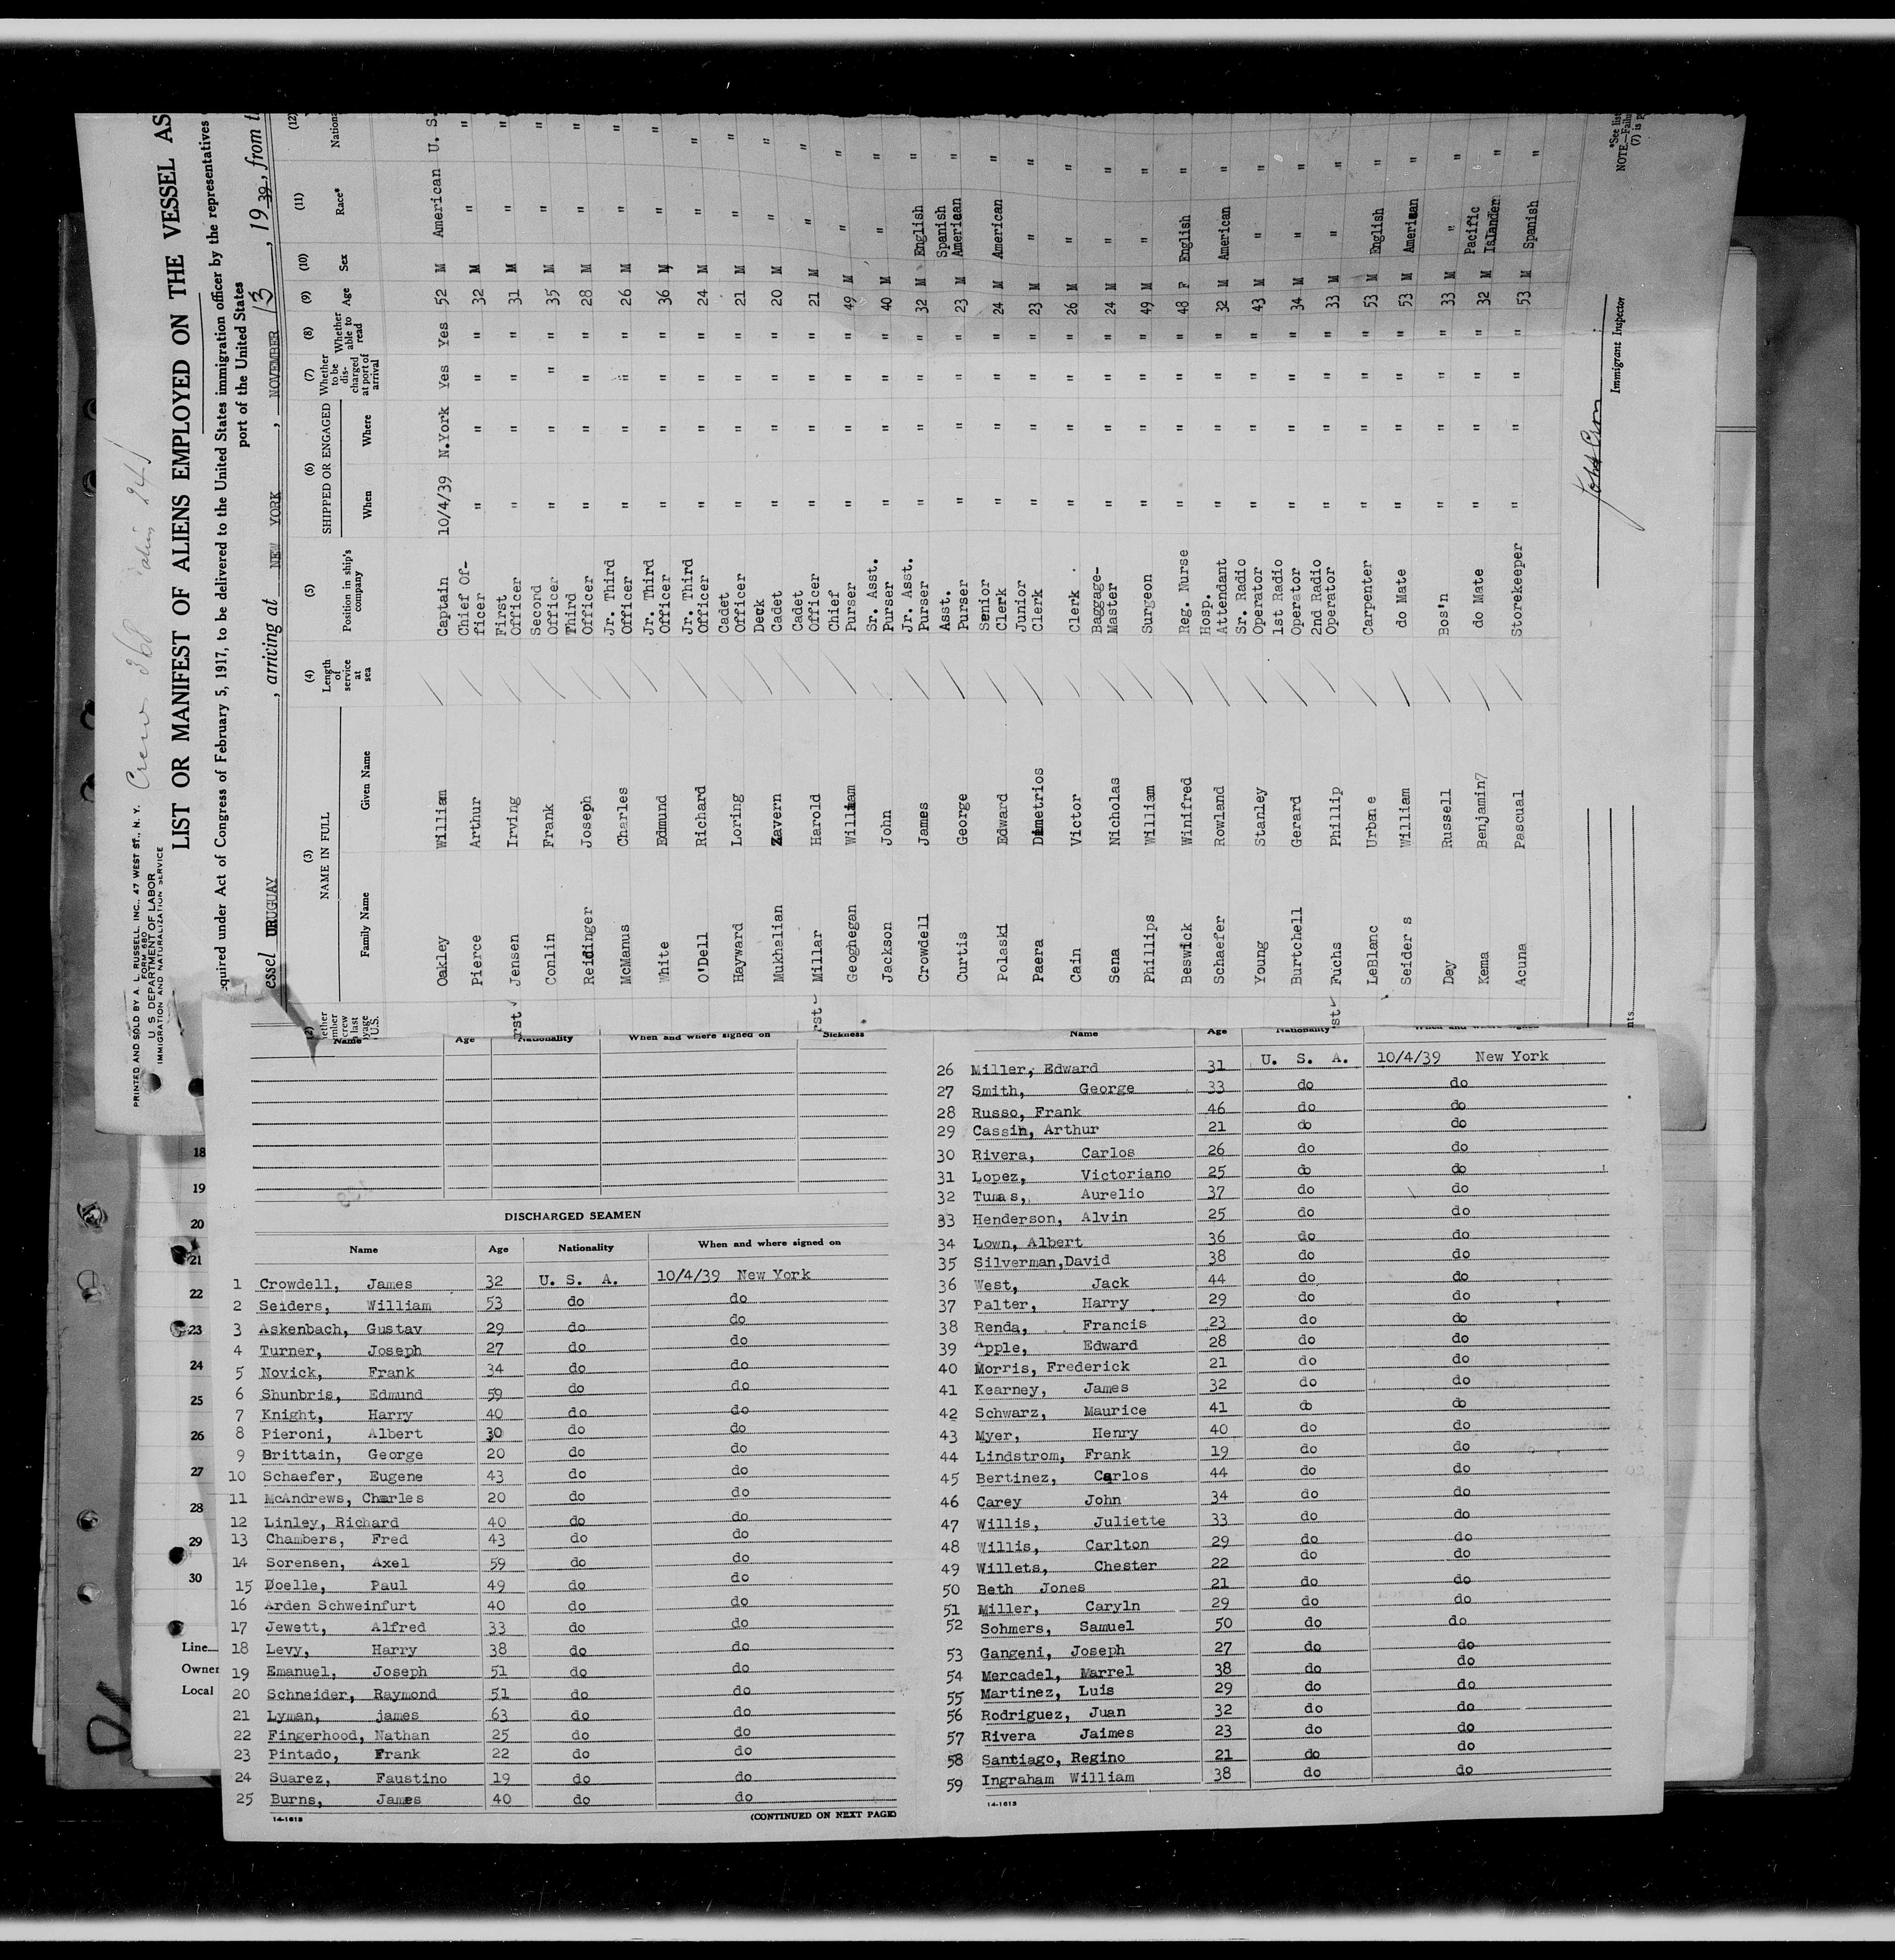 PRINTED AND SOLD BY A. L. RUSSELL, INC., 47 WEST ST., N. Y.
FORM 680
U. S. DEPARTMENT OF LABOR
IMMIGRATION AND NATURALIZATION SERVICE
Crew 368
LIST OR MANIFEST OF ALIENS EMPLOYED ON THE VESSEL AS
equired under Act of Congress of February 5, 1917, to be delivered to the United States immigration officer by the representatives
port of the United States
essel URUGUAY , arriving at NEW YORK , NOVEMBER 13 , 19 39 , from t
(2) (3) (4) (5) (6) (7) (8) (9) (10) (11) (12)
NAME IN FULL Length of service at sea Position in ship's company SHIPPED OR ENGAGED Whether to be discharged at port of arrival Whether able to read Age Sex Race* Nationa
Family Name Given Name When Where
Oakley William Captain 10/4/39 N.York Yes Yes 52 M American U. S.
Pierce Arthur Chief Of-ficer " " " " 32 M " "
Jensen Irving First Officer " " " " 31 M " "
Conlin Frank Second Officer " " " " 35 M " "
Reidinger Joseph Third Officer " " " " 28 M " "
McManus Charles Jr. Third Officer " " " " 26 M " "
White Edmund Jr. Third Officer " " " " 36 M " "
O'Dell Richard Jr. Third Officer " " " " 24 M " "
Hayward Loring Cadet Officer " " " " 21 M " "
Mukhalian Zavern Deck Cadet " " " " 20 M " "
Millar Harold Cadet Officer " " " " 21 M " "
Geoghegan William Chief Purser " " " " 49 M " "
Jackson John Sr. Asst. Purser " " " " 40 M " "
Crowdell James Jr. Asst. Purser " " " " 32 M English "
Curtis George Asst. Purser " " " " 23 M Spanish American "
Polaski Edward Senior Clerk " " " " 24 M American "
Paera Dimetrios Junior Clerk " " " " 23 M " "
Cain Victor Clerk " " " " 26 M " "
Sena Nicholas Baggage-Master " " " " 24 M " "
Phillips William Surgeon " " " " 49 M " "
Beswick Winifred Reg. Nurse " " " " 48 F English "
Schaefer Rowland Hosp. Attendant " " " " 32 M American "
Young Stanley Sr. Radio Operator " " " " 43 M " "
Burtchell Gerard 1st Radio Operator " " " " 34 M " "
Fuchs Phillip 2nd Radio Operator " " " " 33 M " "
LeBlanc Urbane Carpenter " " " " 53 M English "
Seiders William do Mate " " " " 53 M American "
Day Russell Bos'n " " " " 33 M " "
Kema Benjamin7 do Mate " " " " 32 M Pacific Islander "
Acuna Pascual Storekeeper " " " " 53 M Spanish "
Immigrant Inspector
*See lis
NOTE.—Failu
(7) is p
Name Age Nationality When and where signed on Sickness
DISCHARGED SEAMEN
Name Age Nationality When and where signed on
1 Crowdell, James 32 U. S. A. 10/4/39 New York
2 Seiders, William 53 do do
3 Askenbach, Gustav 29 do do
4 Turner, Joseph 27 do do
5 Novick, Frank 34 do do
6 Shunbris, Edmund 59 do do
7 Knight, Harry 40 do do
8 Pieroni, Albert 30 do do
9 Brittain, George 20 do do
10 Schaefer, Eugene 43 do do
11 McAndrews, Charles 20 do do
12 Linley, Richard 40 do do
13 Chambers, Fred 43 do do
14 Sorensen, Axel 59 do do
15 Doelle, Paul 49 do do
16 Arden Schweinfurt 40 do do
17 Jewett, Alfred 33 do do
18 Levy, Harry 38 do do
19 Emanuel, Joseph 51 do do
20 Schneider, Raymond 51 do do
21 Lyman, james 63 do do
22 Fingerhood, Nathan 25 do do
23 Pintado, Frank 22 do do
24 Suarez, Faustino 19 do do
25 Burns, James 40 do do
14-1613 (CONTINUED ON NEXT PAGE)
Name Age Nationality
26 Miller, Edward 31 U. S. A. 10/4/39 New York
27 Smith, George 33 do do
28 Russo, Frank 46 do do
29 Cassin, Arthur 21 do do
30 Rivera, Carlos 26 do do
31 Lopez, Victoriano 25 do do
32 Tumas, Aurelio 37 do do
33 Henderson, Alvin 25 do do
34 Lown, Albert 36 do do
35 Silverman,David 38 do do
36 West, Jack 44 do do
37 Palter, Harry 29 do do
38 Renda, Francis 23 do do
39 Apple, Edward 28 do do
40 Morris, Frederick 21 do do
41 Kearney, James 32 do do
42 Schwarz, Maurice 41 do do
43 Myer, Henry 40 do do
44 Lindstrom, Frank 19 do do
45 Bertinez, Carlos 44 do do
46 Carey John 34 do do
47 Willis, Juliette 33 do do
48 Willis, Carlton 29 do do
49 Willets, Chester 22 do do
50 Beth Jones 21 do do
51 Miller, Caryln 29 do do
52 Sohmers, Samuel 50 do do
53 Gangeni, Joseph 27 do do
54 Mercadel, Marrel 38 do do
55 Martinez, Luis 29 do do
56 Rodriguez, Juan 32 do do
57 Rivera Jaimes 23 do do
58 Santiago, Regino 21 do do
59 Ingraham William 38 do do
14-1613
18
19
20
21
22
23
24
25
26
27
28
29
30
Line
Owner
Local